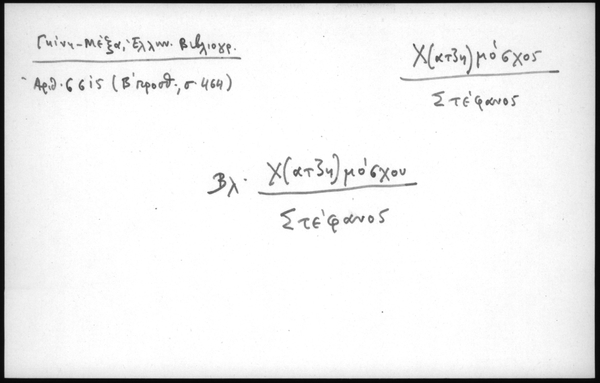 Γκίνη-Μέξα, Ἑλλην. Βιβλιογρ.
Ἀριθ. 6615 (Β' προσθ., σ. 464)
Χ(ατζη)μόσχος
Στέφανος
Βλ. Χ(ατζη)μόσχου
Στέφανος